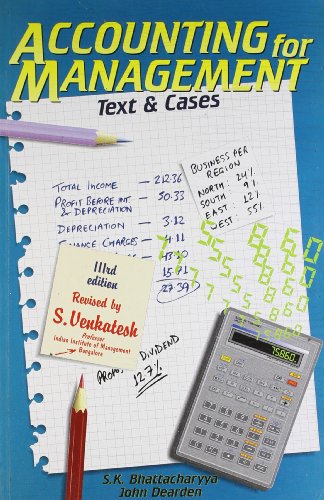 ACCOUNTING for
MANAGEMENT
Text & Cases
BUSINESS PER
REGION
NORTH: 24%
SOUTH: 9%
EAST: 12%
WEST: 55%
TOTAL INCOME — 212.36
PROFIT BEFORE INT. — 50.33
& DEPRECIATION
DEPRECIATION — 3.12
FINANCE CHARGES — 4.11
43.10
15.71
27.39
IIIrd
edition
Revised by
S.Venkatesh
Professor
Indian Institute of Management
Bangalore
DIVIDEND
127%
75860
S.K. Bhattacharyya
John Dearden